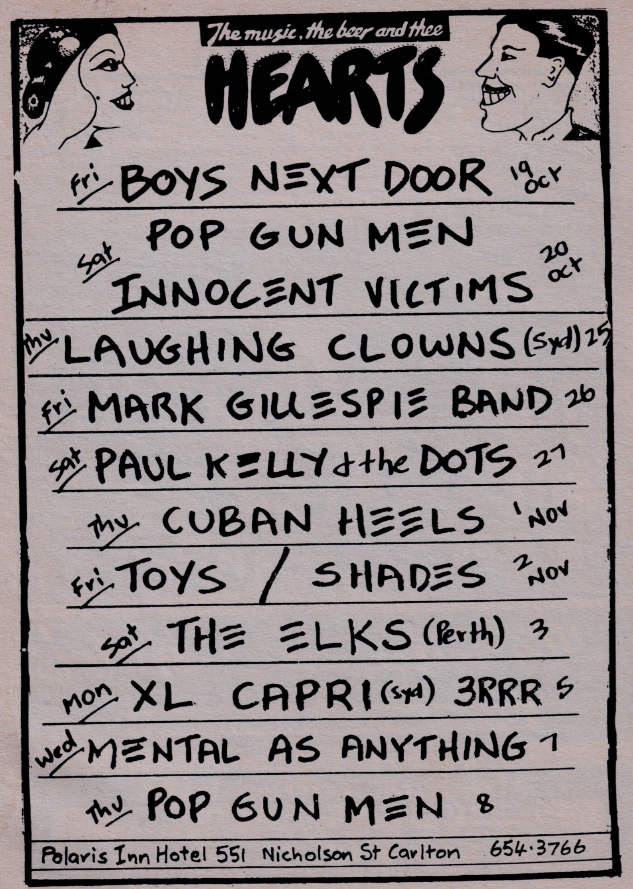 The music, the beer and thee
HEARTS
Fri BOYS NEXT DOOR 19 Oct
POP GUN MEN
Sat INNOCENT VICTIMS 20 Oct
Thu LAUGHING CLOWNS (Syd) 25
Fri MARK GILLESPIE BAND 26
Sat PAUL KELLY & the DOTS 27
Thu CUBAN HEELS 1 Nov
Fri TOYS / SHADES 2 Nov
Sat THE ELKS (Perth) 3
Mon XL CAPRI (Syd) 3RRR 5
Wed MENTAL AS ANYTHING 7
Thu POP GUN MEN 8
Polaris Inn Hotel 551 Nicholson St Carlton 654·3766